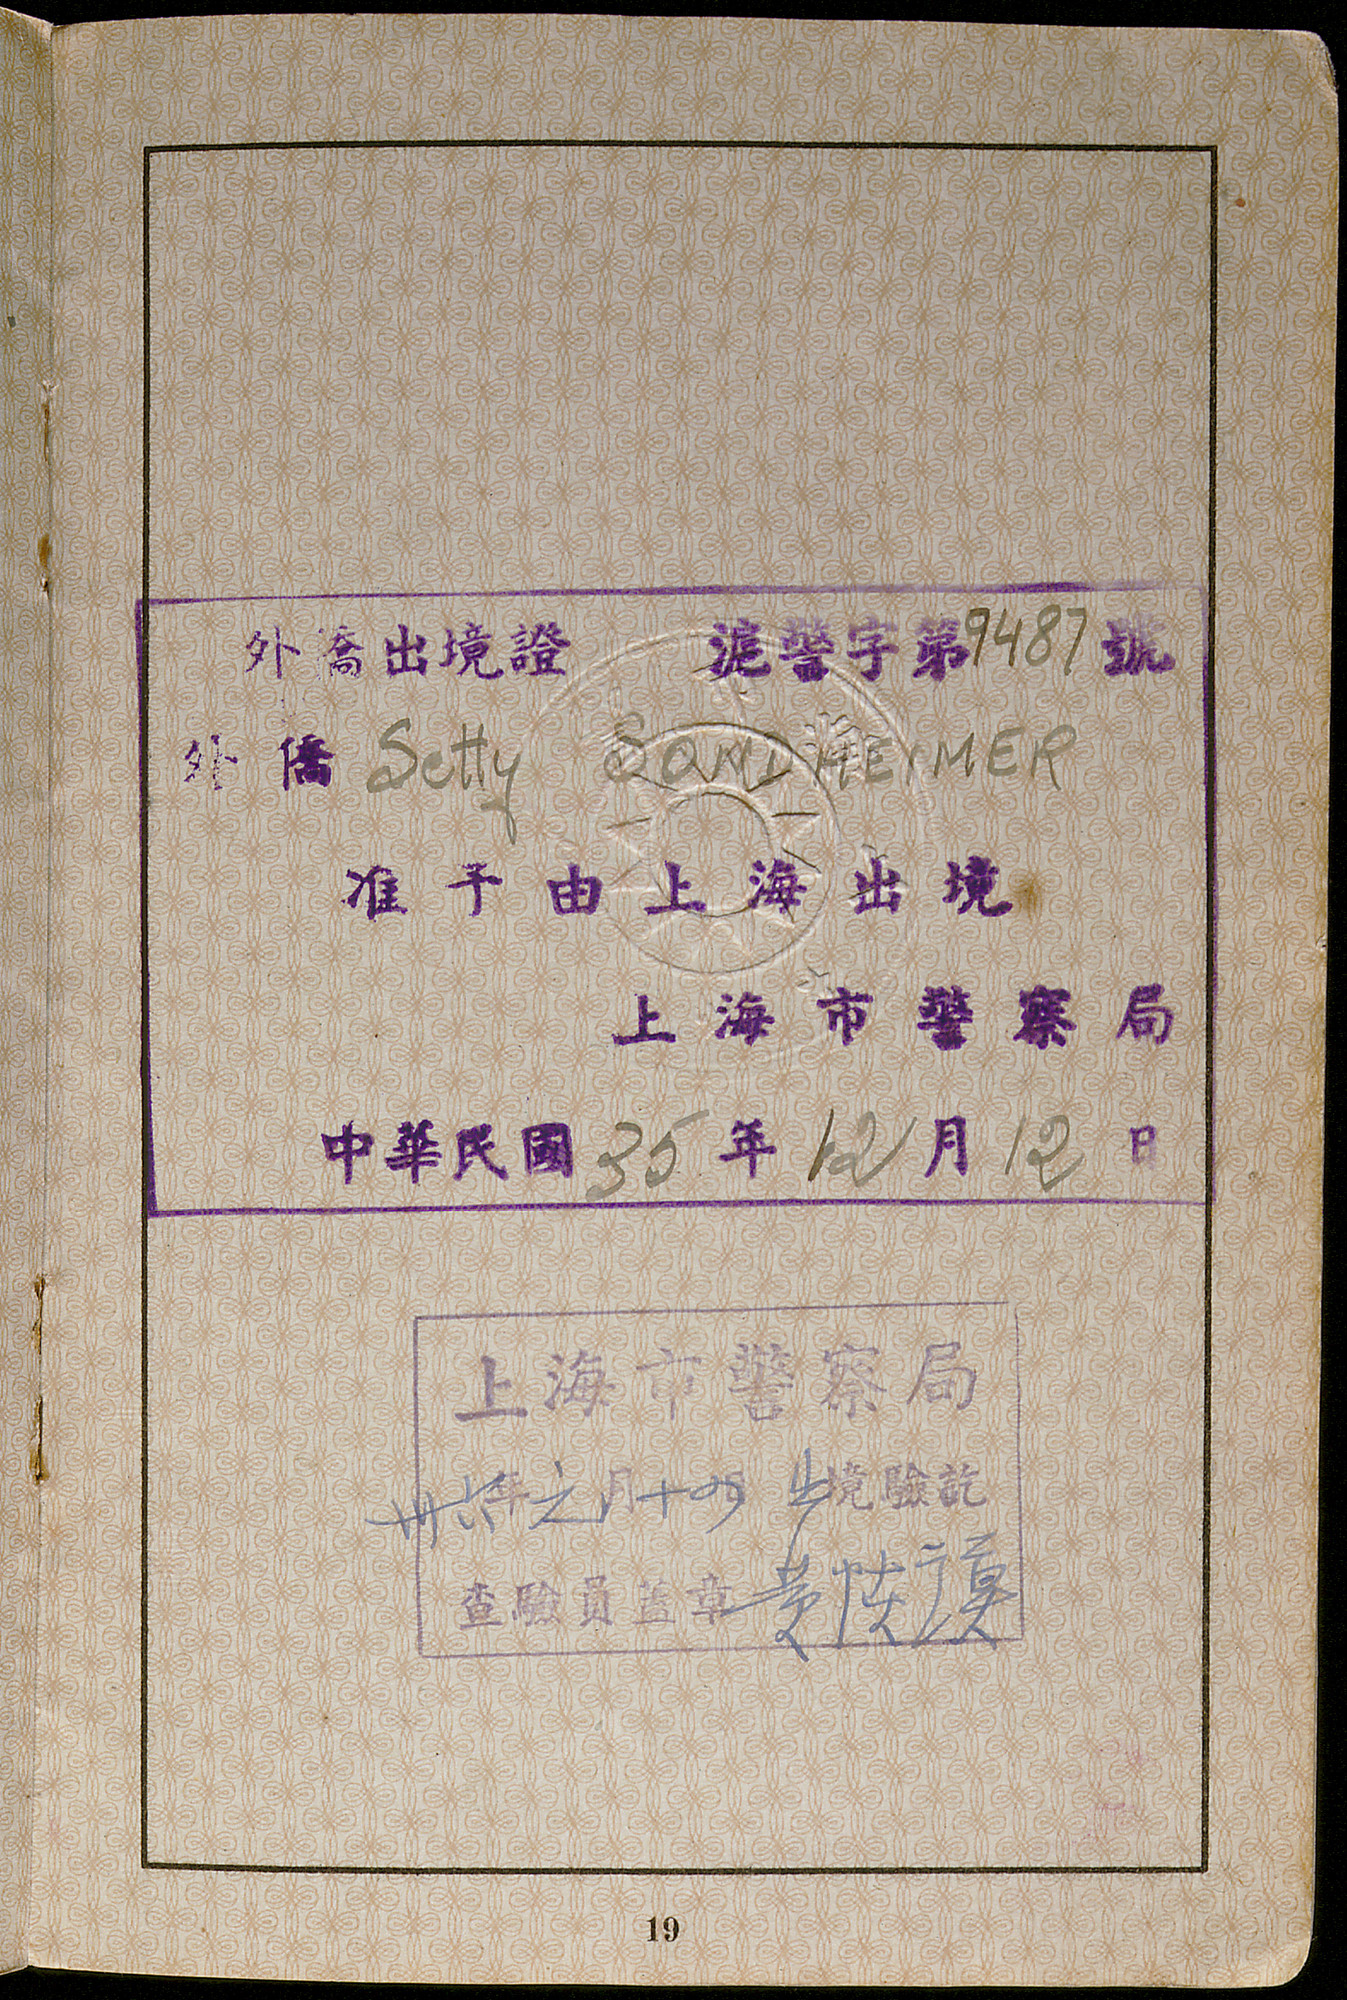 外僑出境證 滬警字第9487號
外僑 Setty SONDHEIMER
准予由上海出境
上海市警察局
中華民國35年12月12日
上海市警察局
卅六年元月十四 出境驗訖
查驗員蓋章 黃
19